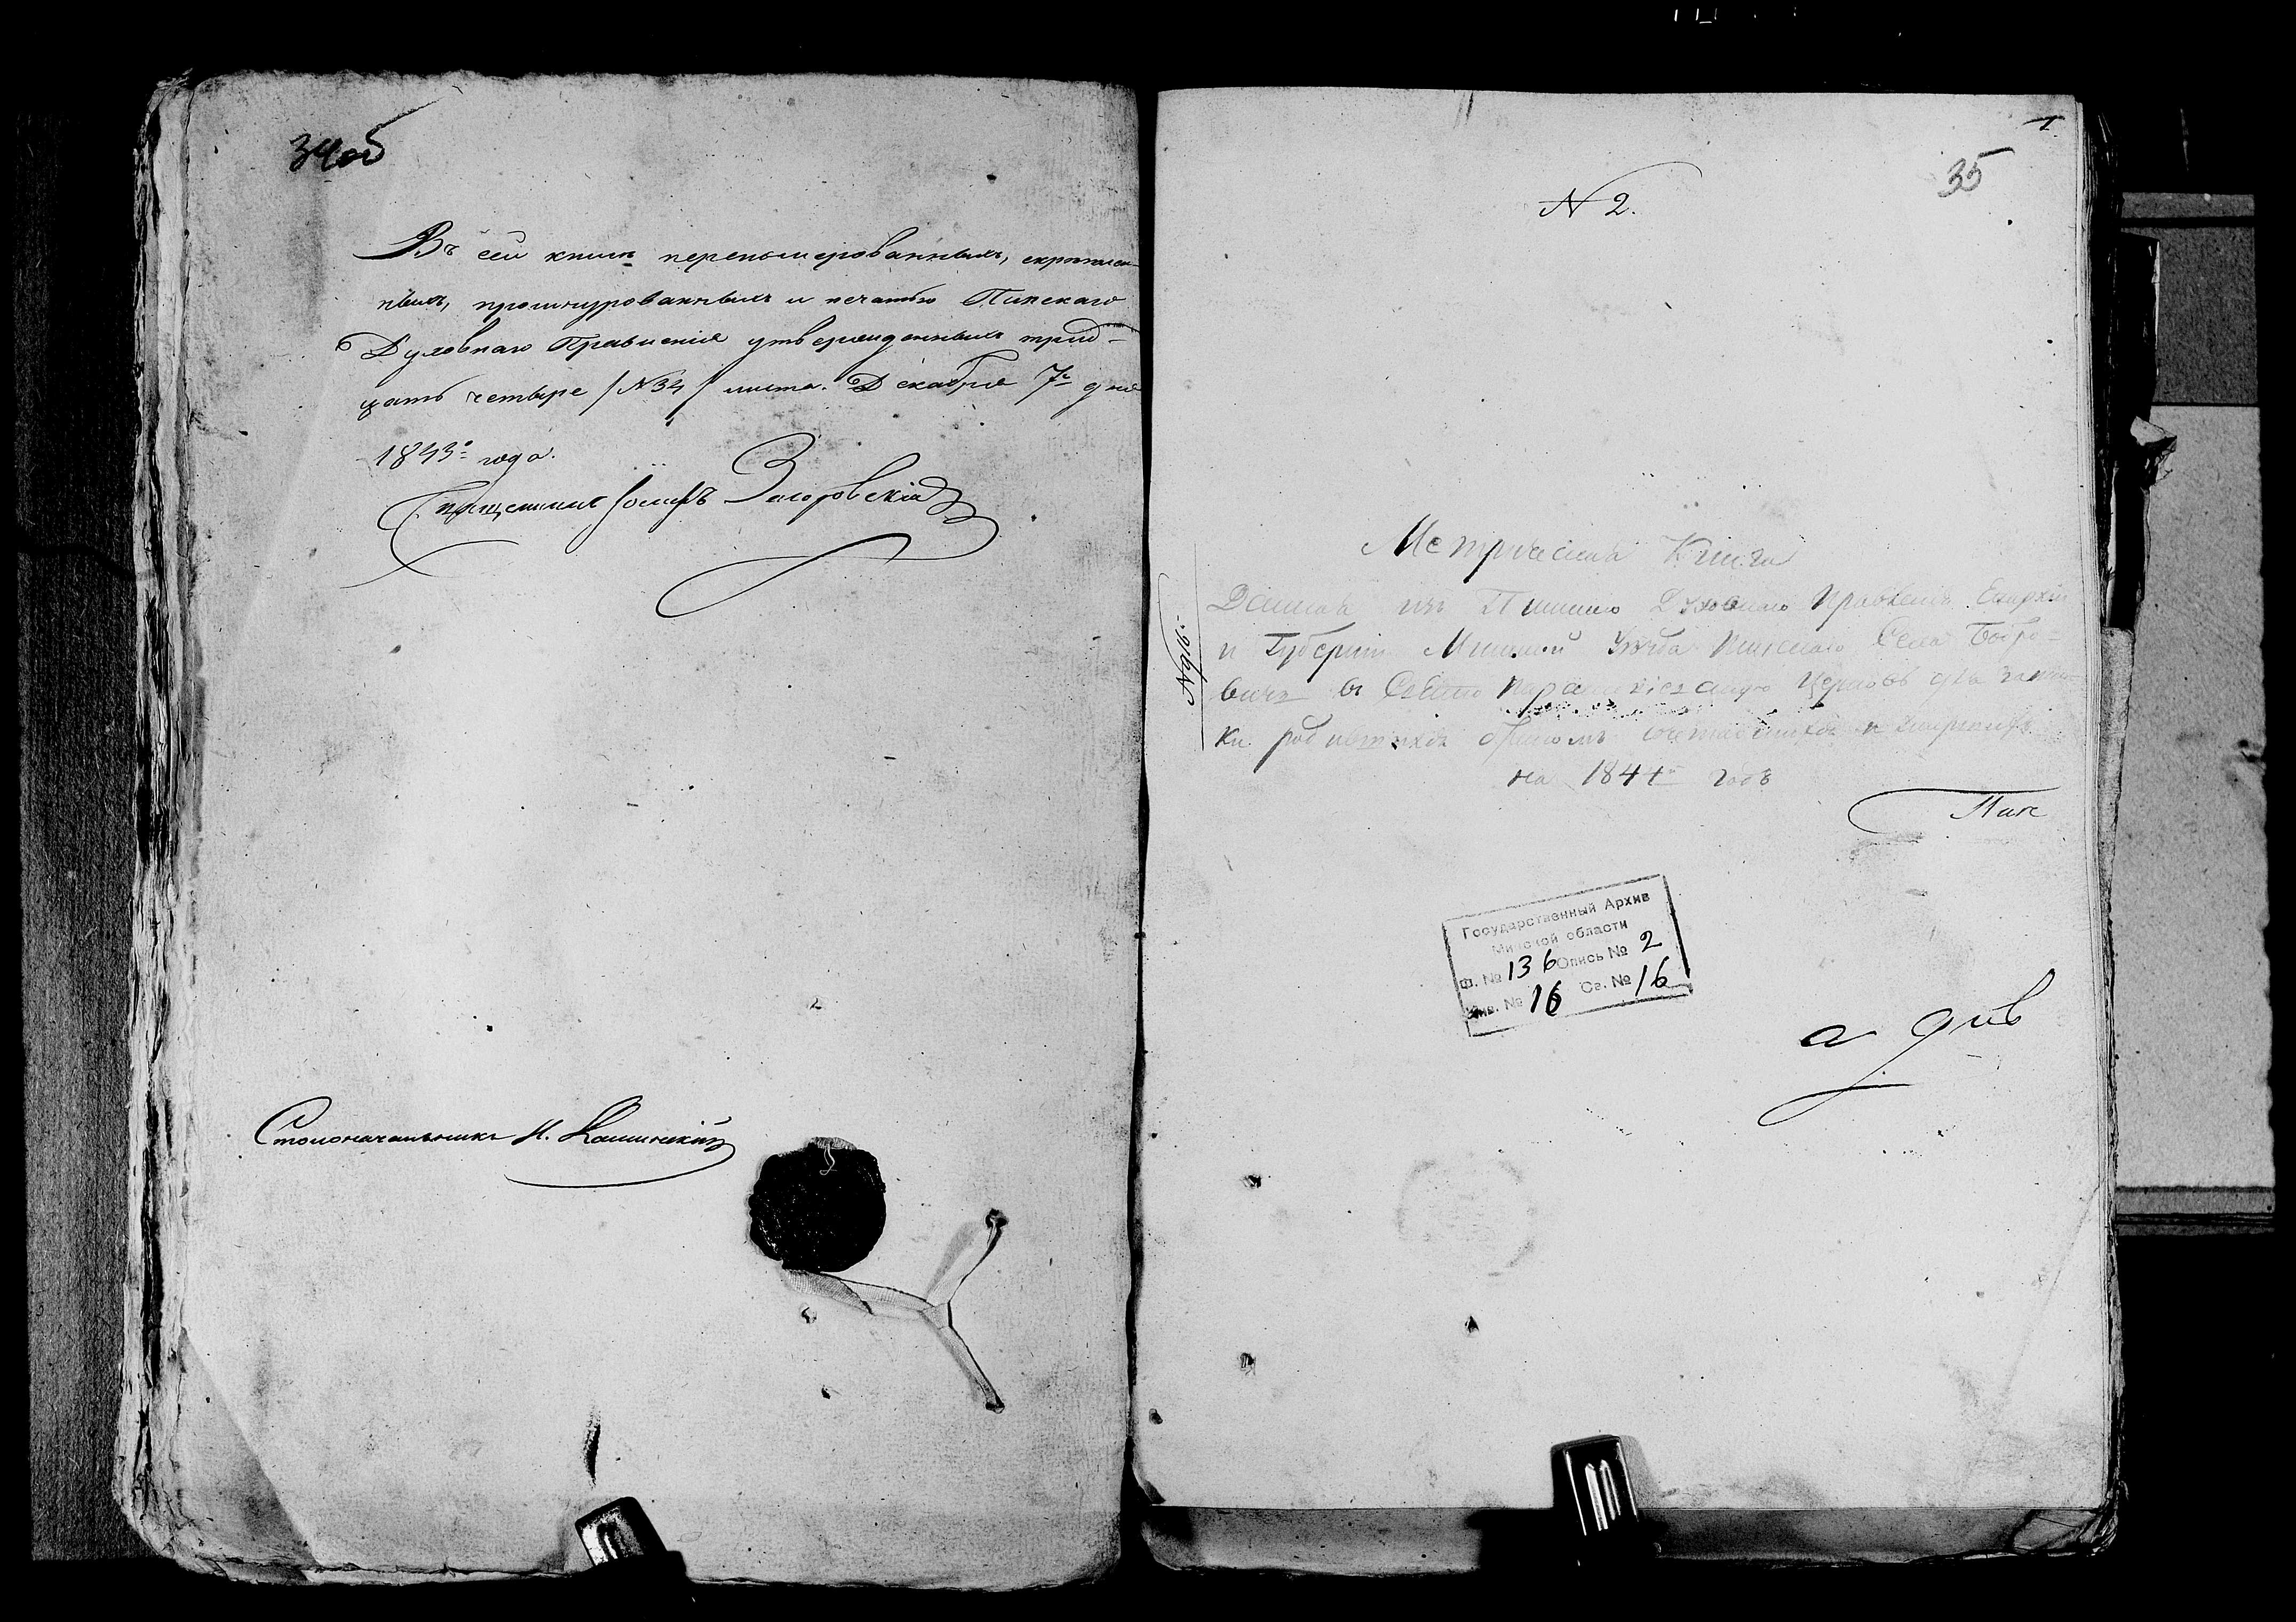 34об
Въ сей книгѣ перенумерованныхъ, скрѣплен-
ныхъ, прошнурованныхъ и печатью Пинскаго
Духовнаго Правленія утвержденныхъ трид-
цать четыре /№34/ листа. Декабря 7го дня
1843го года.
Священникъ Іосифъ Загоровскій
Столоначальникъ И. Калинскій
1
35
N 2.
N916.
Метрическая Книга
Данная изъ Пинскаго Духовнаго Правленія Епархіи
и Губерніи Минской Уѣзда Пинскаго Села Бобро-
вичъ въ Свято Параскіевскую Церковь для запис-
ки родившихся бракомъ сочетавшихся и умершихъ
на 1844й годъ
Пин
Государственный Архив
Минской области
Ф. № 136 Опись № 2
Инв. № 16 Св. № 16